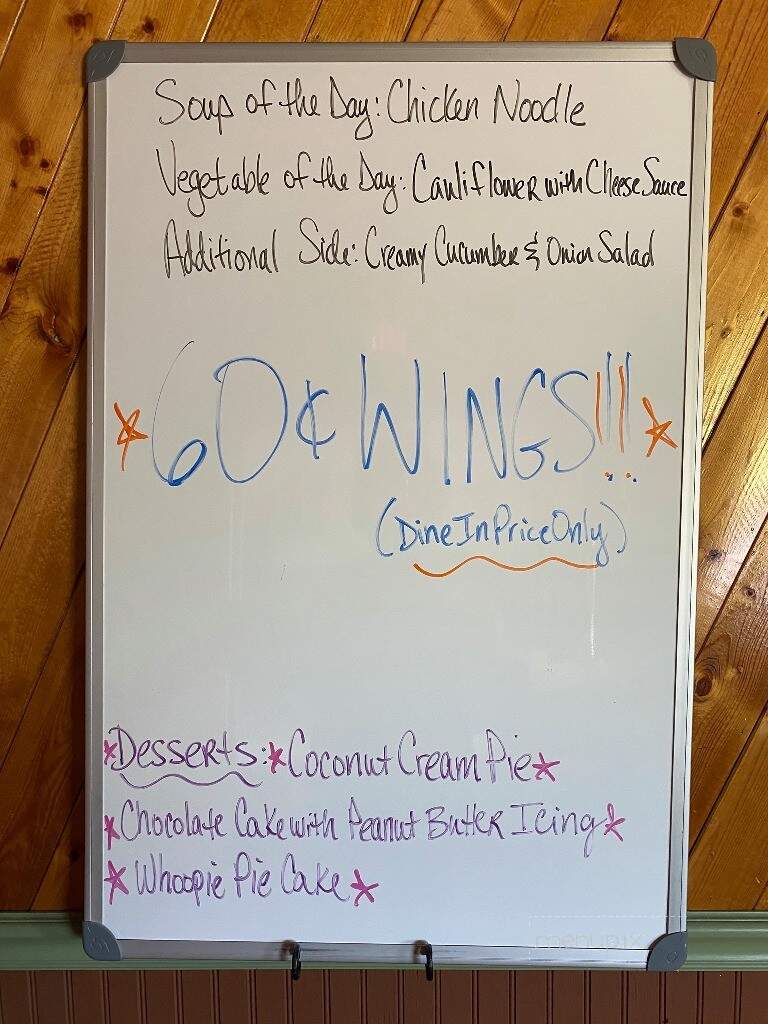 Soup of the Day: Chicken Noodle
Vegetable of the Day: Cauliflower with Cheese Sauce
Additional Side: Creamy Cucumber & Onion Salad
60¢ WINGS!!!
(Dine In Price Only)
Desserts: Coconut Cream Pie
Chocolate Cake with Peanut Butter Icing
Whoopie Pie Cake
menupix